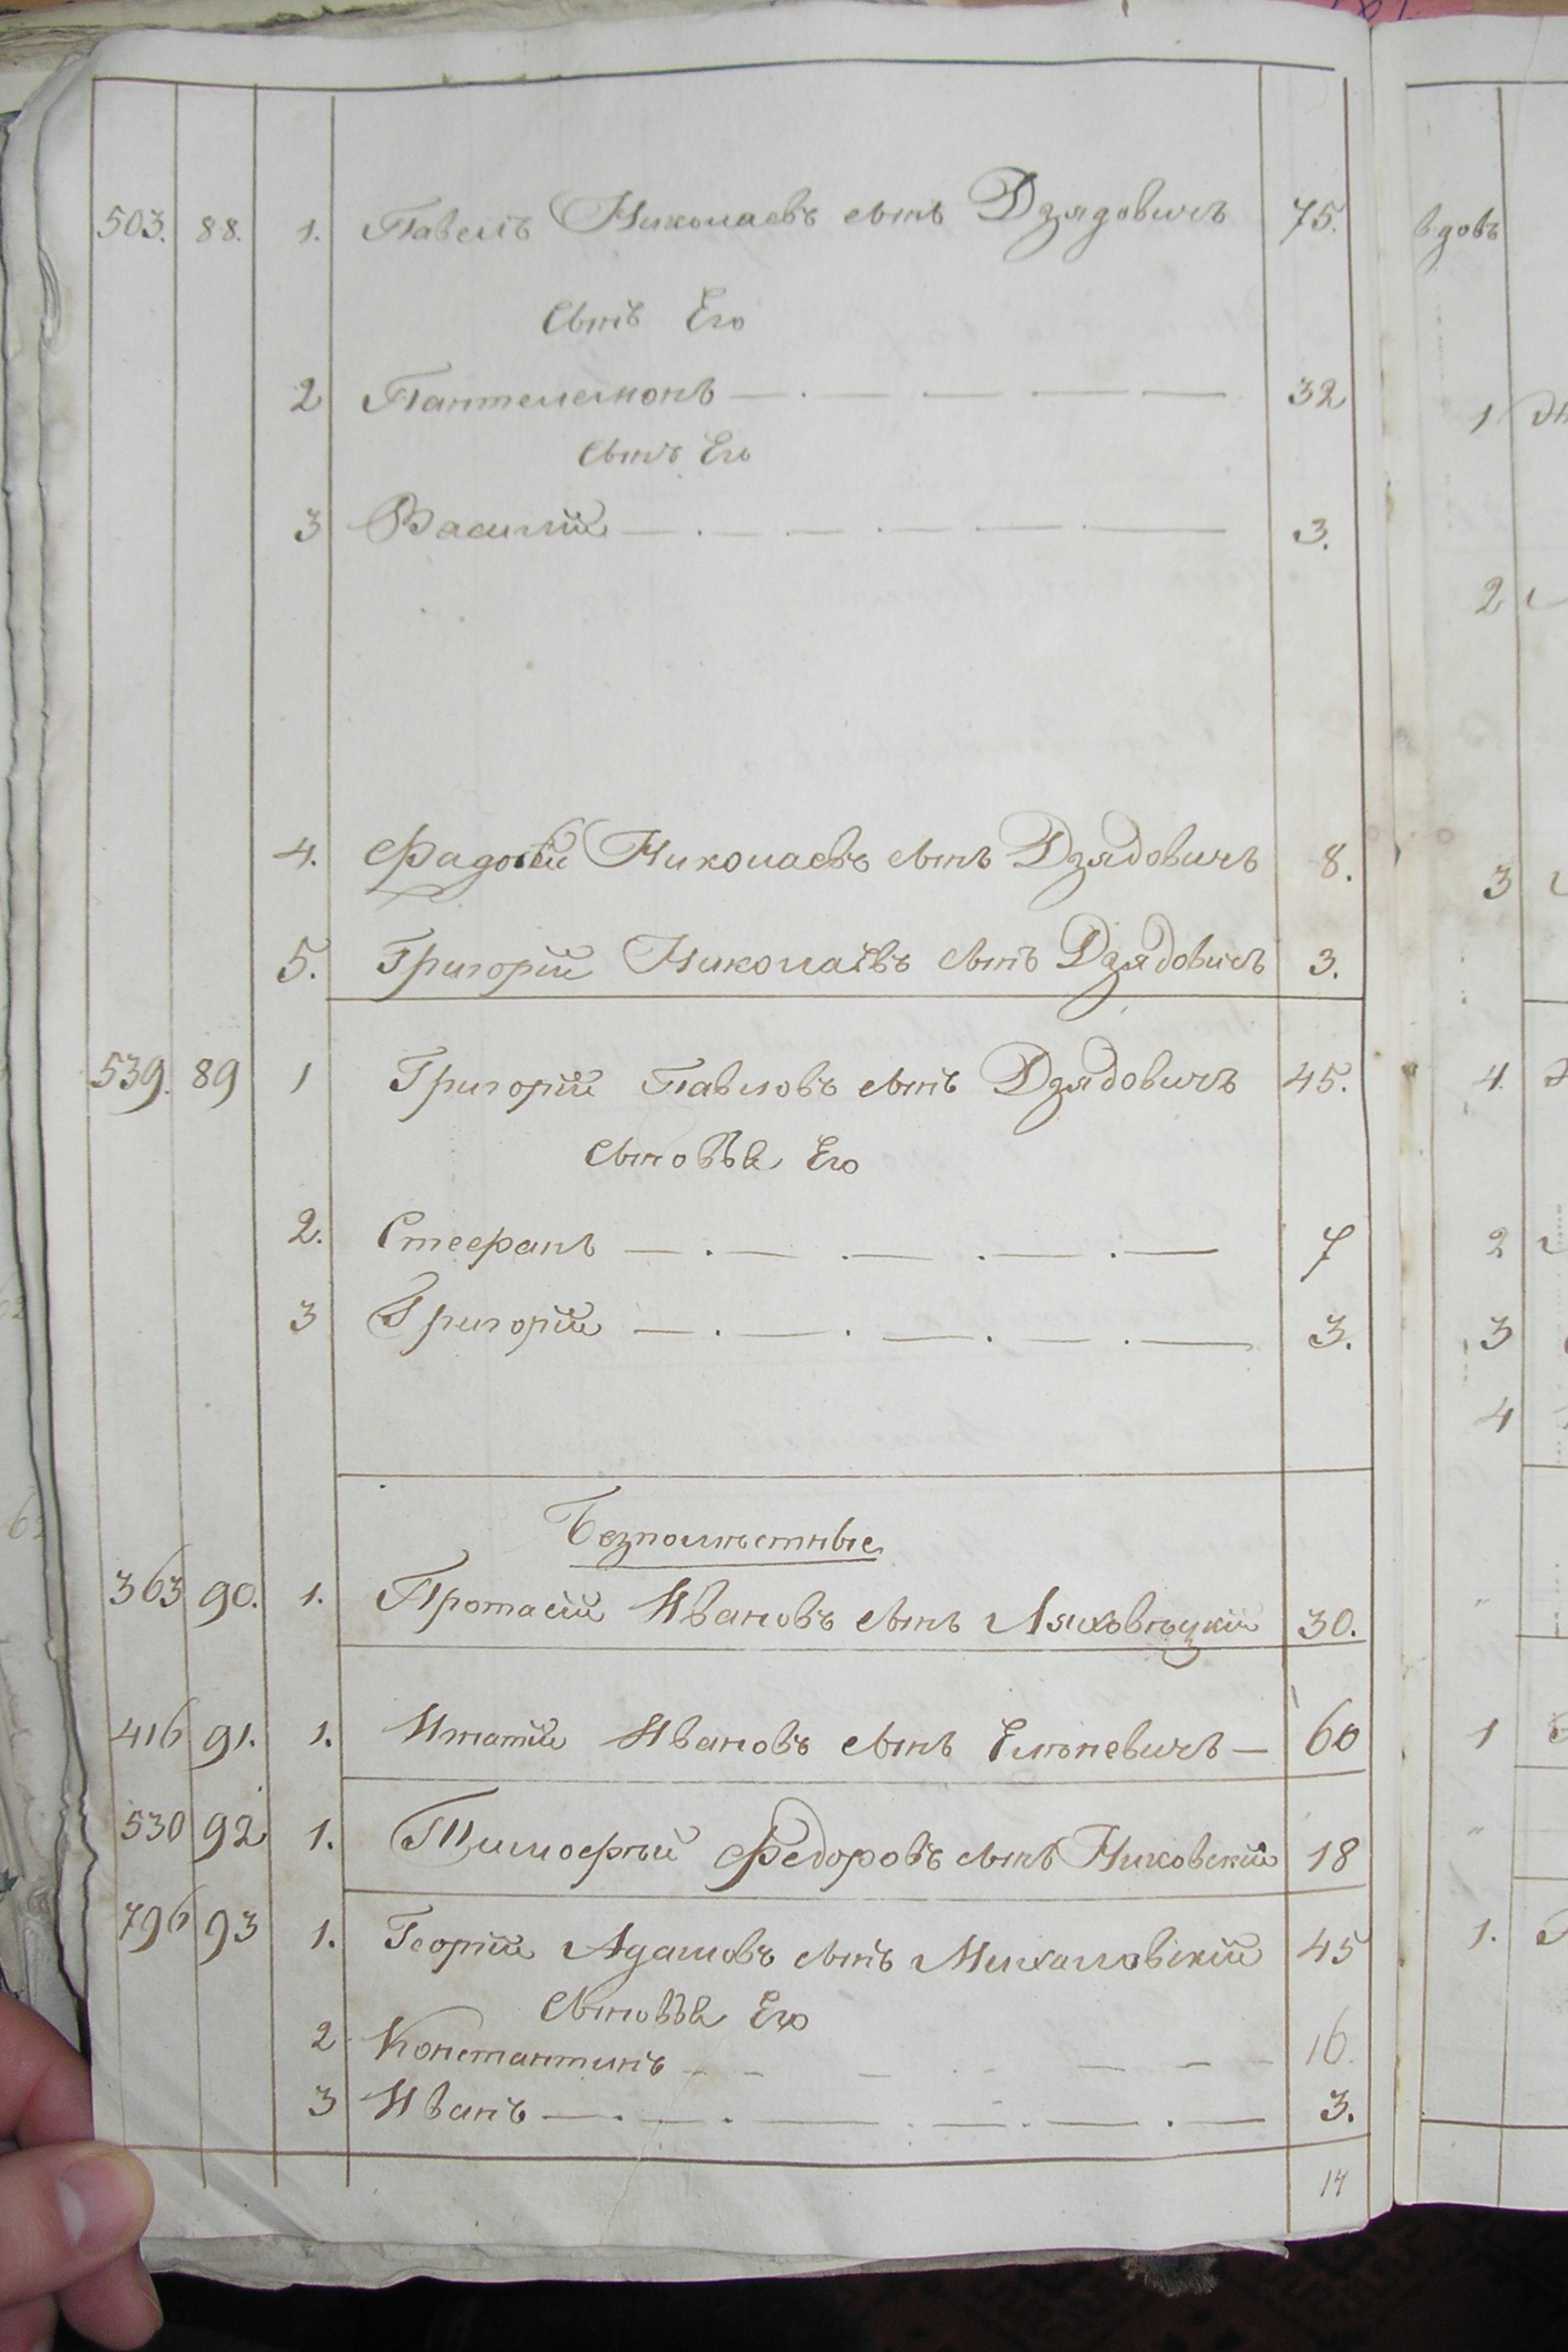 503. 88. 1. Павелъ Николаевъ сынъ Дзядовичъ 75.
Сынъ Его
2 Пантелемонъ — . — — — — 32
Сынъ Его
3 Василій — . — . — . — — 3.
4. Николаевъ сынъ Дзядовичъ 8.
5. Григорій Николаевъ сынъ Дзядовичъ 3.
539. 89 1 Григорій Павловъ сынъ Дзядовичъ 45.
Сыновья Его
2. Стефанъ — . — . — . — . — 7
3 Григорій — . — . — . — . — 3.
Безпомѣстные
363 90. 1. Протасій Ивановъ сынъ 30.
416 91. 1. Игнатій Ивановъ сынъ — 60
530 92 1. Тимофѣй Федоровъ сынъ 18
796 93 1. Георгій Адамовъ сынъ Михаловскій 45
Сыновья Его
2 Константинъ — — — — — — 16.
3 Иванъ — . — . — . — . — . — 3.
14
вдовъ
1
2
3
4.
2
3
4
1
1.